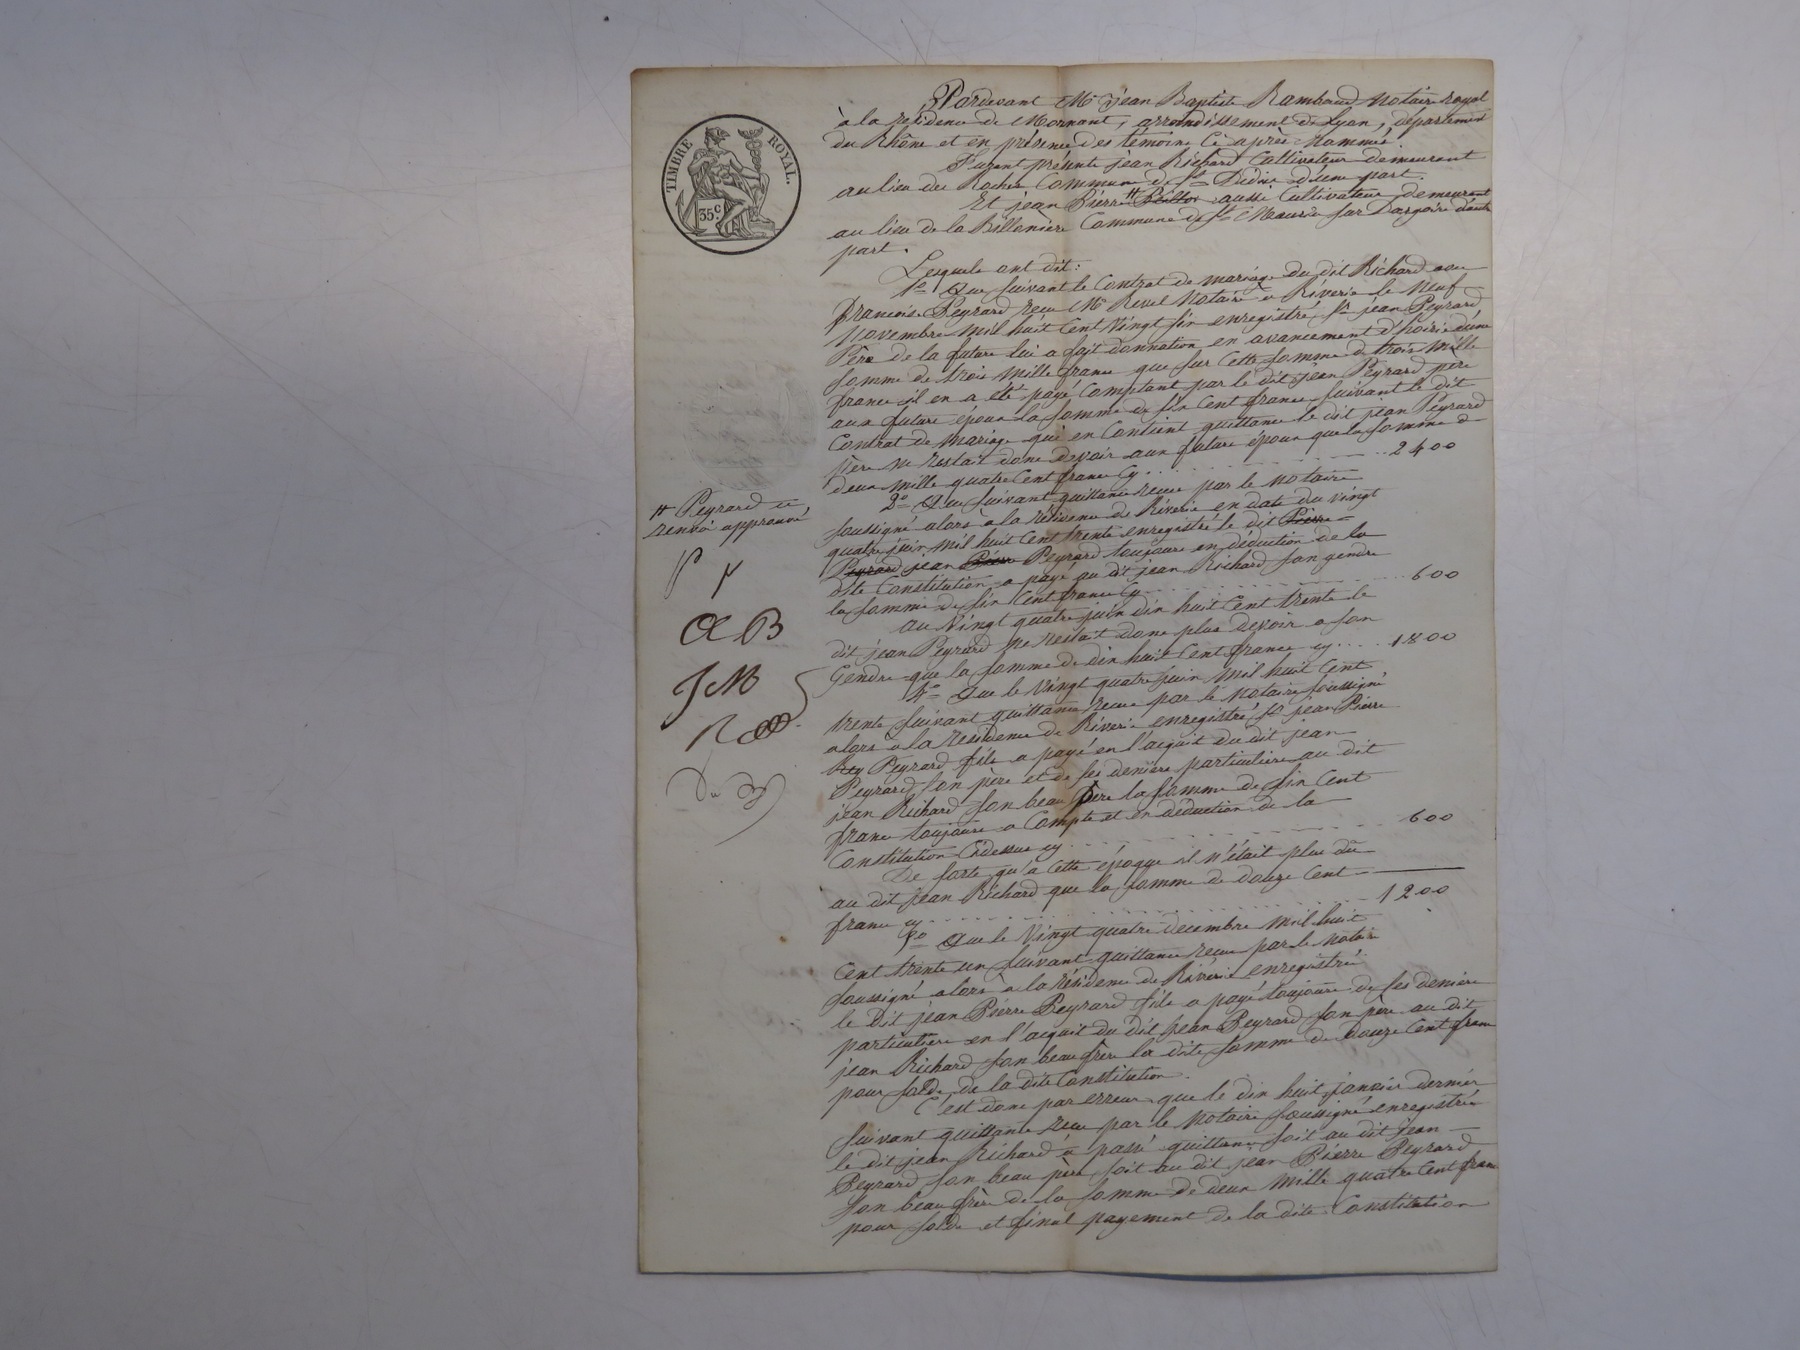 TIMBRE ROYAL.
35c
Pardevant Me jean Baptiste Rambaud Notaire royal
à la residence de Mornant, arrondissement de Lyon, département
du Rhône et en présence des témoins Ci après Nommés.
Furent présents jean Richard Cultivateur demeurant
au lieu des Roches Commune de St Didier d'une part.
Et jean Pierre # aussi Cultivateur demeurant
au lieu de la Billanière Commune de St Maurice sur Dargoire d'autre
part.
Lesquels ont dit:
1o Que suivant le Contrat de mariage du dit Richard avec
françoise Peyrard reçu Me Revel Notaire à Riverie le Neuf
Novembre Mil huit Cent Vingt six enregistré, Sr jean Peyrard
Père de la future lui a fait donnation en avancement d'hoirie d'une
somme de trois Mille francs que sur Cette somme de trois Mille
francs il en a été payé Comptant par le dit jean Peyrard père
aux futurs époux la somme de six Cent francs suivant le dit
Contrat de Mariage qui en Contient quittance le dit jean Peyrard
père ne restait donc devoir aux futurs époux que la somme de
deux Mille quatre Cent francs Cy . . . . . . . . 2400
2o Que suivant quittance reçue par le Notaire
soussigné alors à la résidence de Riverie en date du vingt
quatre juin Mil huit Cent trente enregistré le dit Pierre
Peyrard jean Pierre Peyrard toujours en déduction de la
dite Constitution a payé au dit jean Richard son gendre
la somme de six Cent francs Cy . . . . . . . . 600
Au Vingt quatre juin dix huit Cent trente le
dit jean Peyrard Ne restait donc plus devoir a son
Gendre que la somme de dix huit Cent francs cy . . . . 1800
Que le Vingt quatre juin Mil huit Cent
trente suivant quittance reçue par le Notaire soussigné
alors à la residence de Riverie enregistré Sr jean Pierre
Rey Peyrard fils a payé en l'acquit du dit jean
Peyrard son père et de ses deniers particuliers au dit
jean Richard son beau frère la somme de six Cent
francs toujours a Compte et en déduction de la
Constitution Cidessus cy . . . . . . . . 600
De sorte qu'à Cette époque il n'était plus dû
au dit jean Richard que la somme de douze Cent
francs cy . . . . . . . . 1200
Que le Vingt quatre decembre Mil huit
Cent trente un suivant quittance reçue par le Notaire
soussigné alors à la résidence de Riverie enregistré
le Dit jean Pierre Peyrard fils a payé toujours de ses deniers
particuliers en l'acquit du dit jean Peyrard son père au dit
jean Richard son beau frère la dite somme de Douze Cent francs
pour solde de la dite Constitution.
C'est donc par erreur que le dix huit janvier dernier
suivant quittance reçue par le Notaire soussigné enregistrée
le dit jean Richard à passé quittance soit au dit jean
Peyrard son beau père soit au dit jean Pierre Peyrard
son beau frère de la somme de deux Mille quatre Cent francs
pour solde et final payement de la dite Constitution
# Peyrard ce
renvoi approuvé
P P
JCM